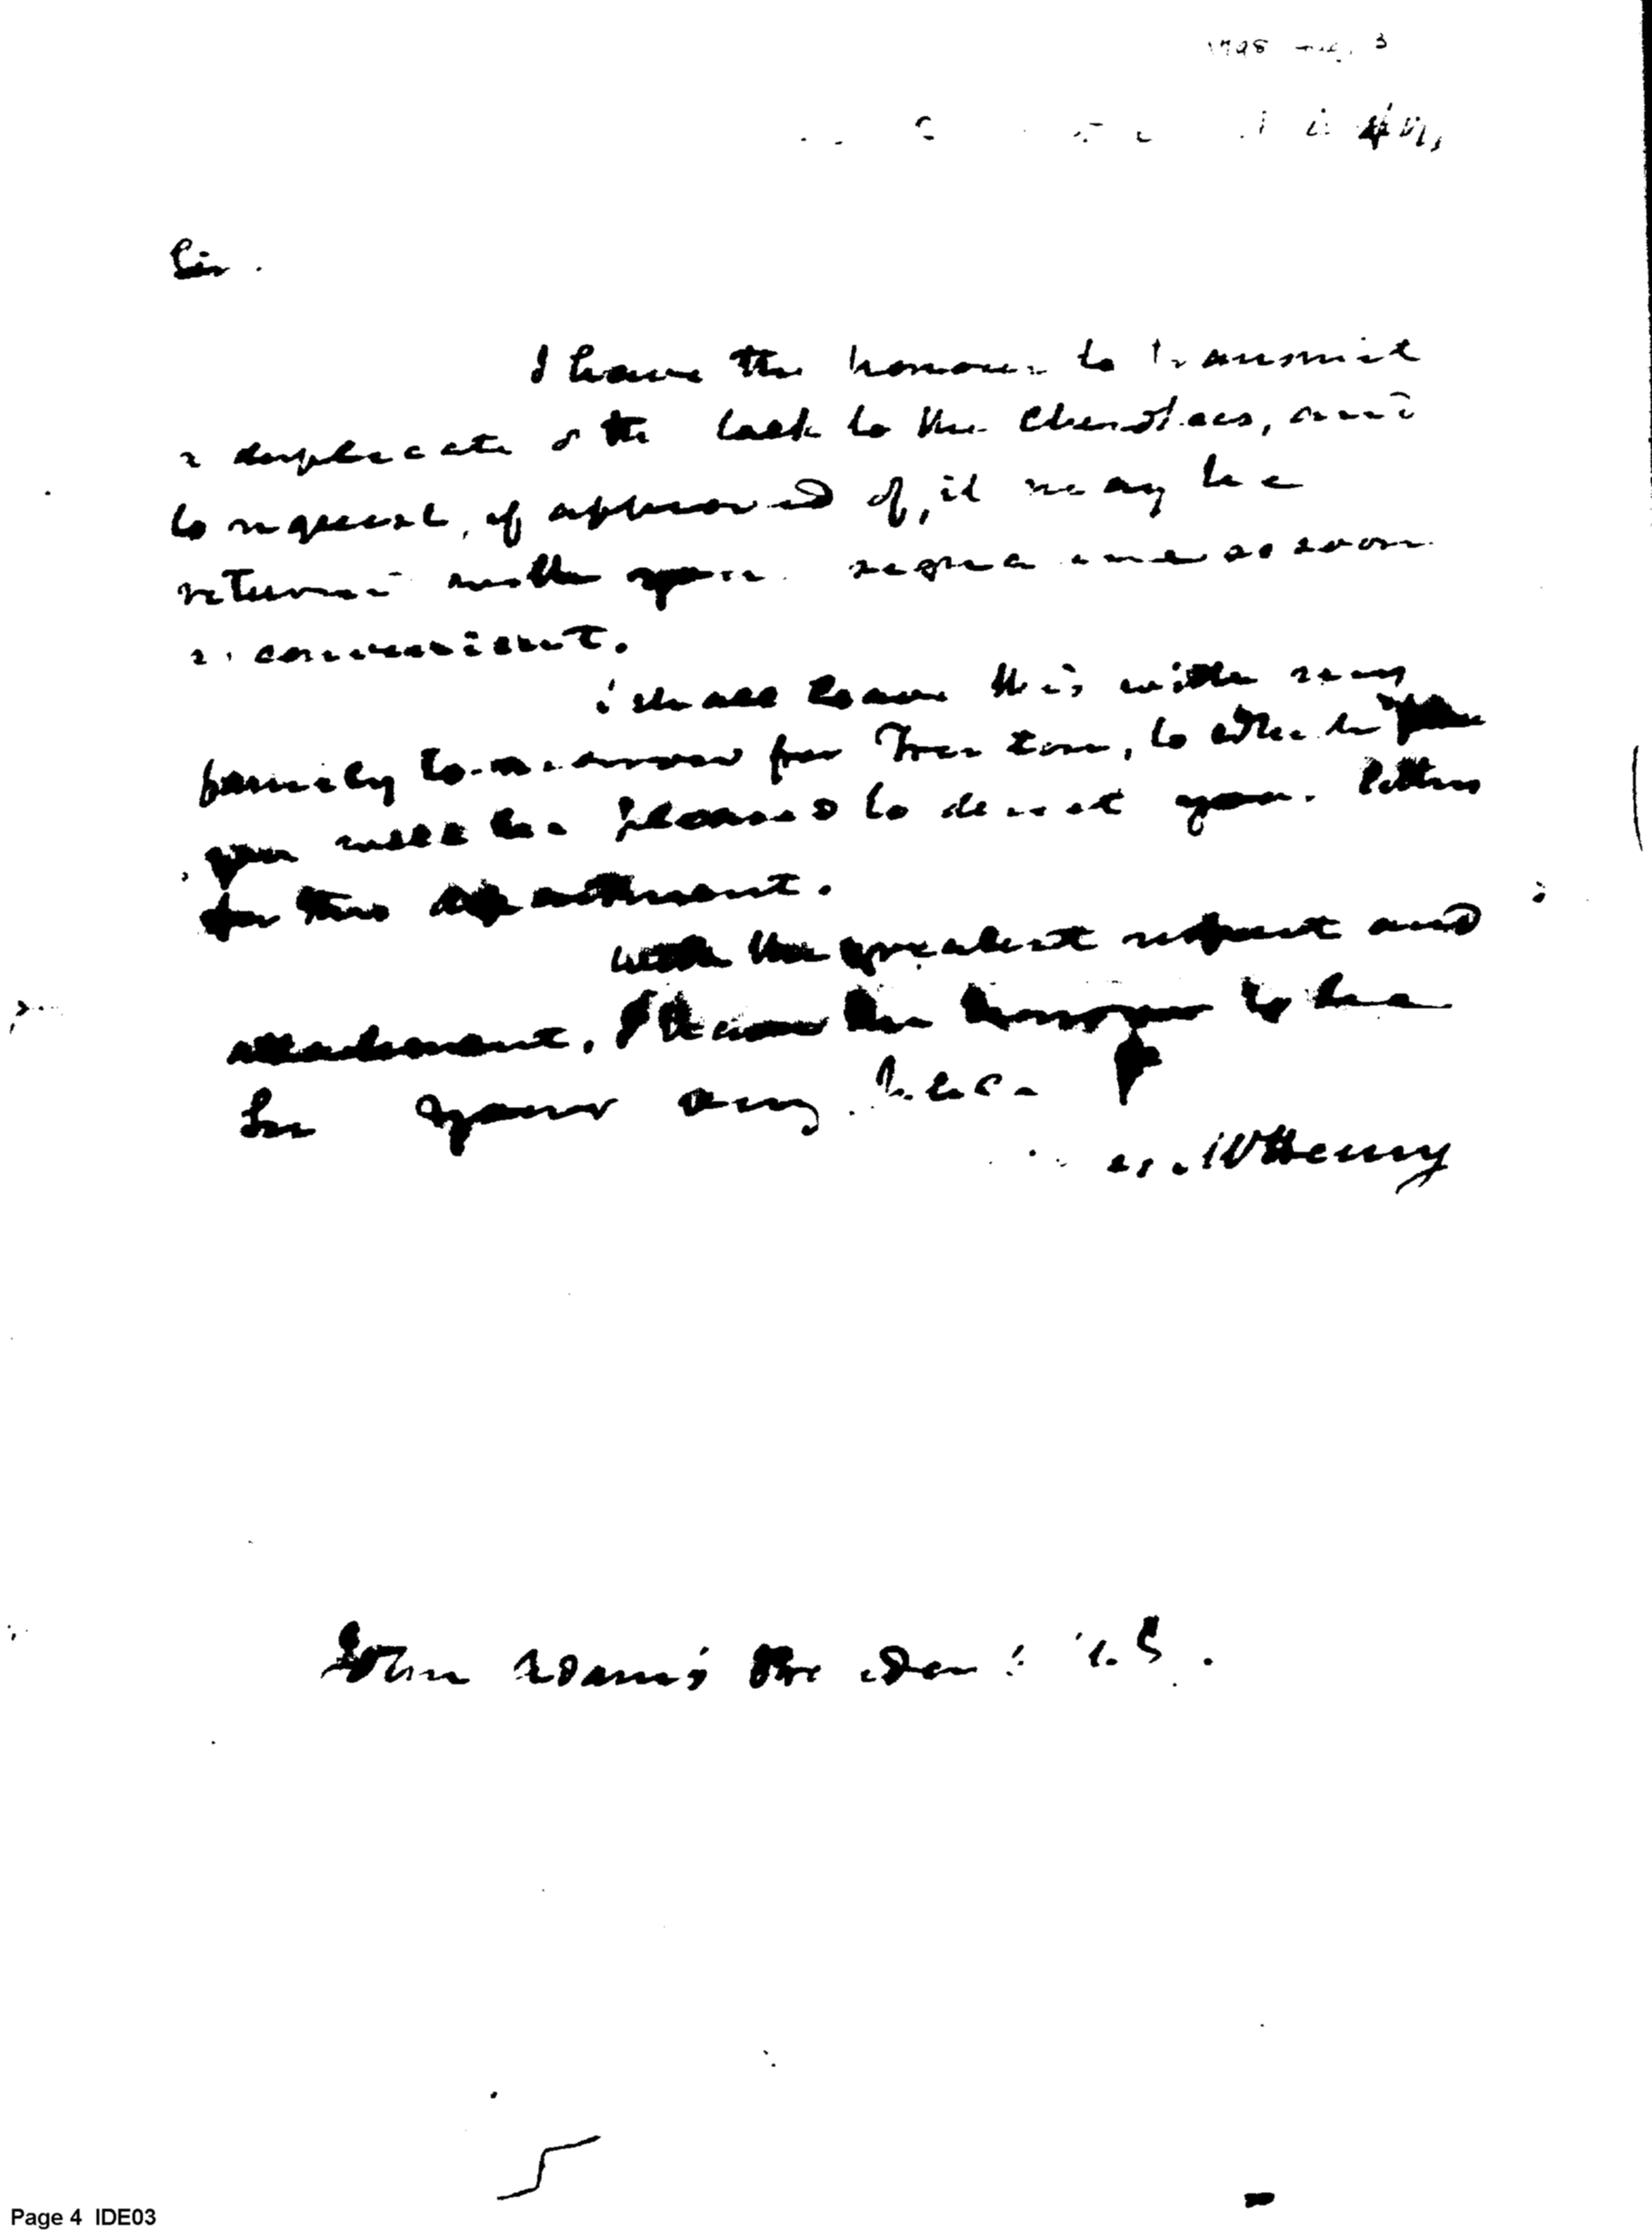 1798 3
Sir.
I have the honour to transmit
a duplicate of the talk to the Cherokees, and
to request, if approved of, it may be
returned with your signature as soon
as convenient.
I shall leave this with my
family to-morrow for Trenton, to which place
you will be pleased to direct your letters
for this department.
With the greatest respect and
attachment, I have the honour to be
Sir your
McHenry
John Adams President U.S.
Page 4 IDE03